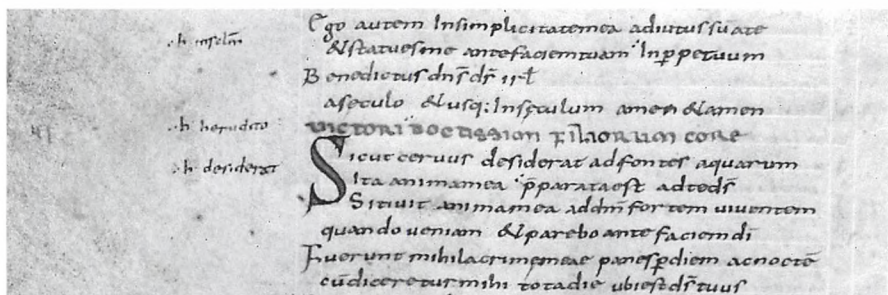 .h. inselm̄
Ego autem Insimplicitatemea adiutussū ate
&statuesme antefaciemtuam Inp̄petuum
Benedictus dn̄s ds̄
aseculo &usq: Insęculum amen &amen
.h. herudito
VICTORI DOCTISSION FILIORUM CORE
.h. desiderat
Sicut ceruus desiderat adfontes aquarum
Ita animamea p̄parataest adteds̄
Sitiuit animamea addn̄m fortem uiuentem
quando ueniam &parebo ante faciemdī
Fuerunt mihilacrimęmeae panesp̄diem acnoctē
cūdiceretur mihi totadie ubiestds̄tuus